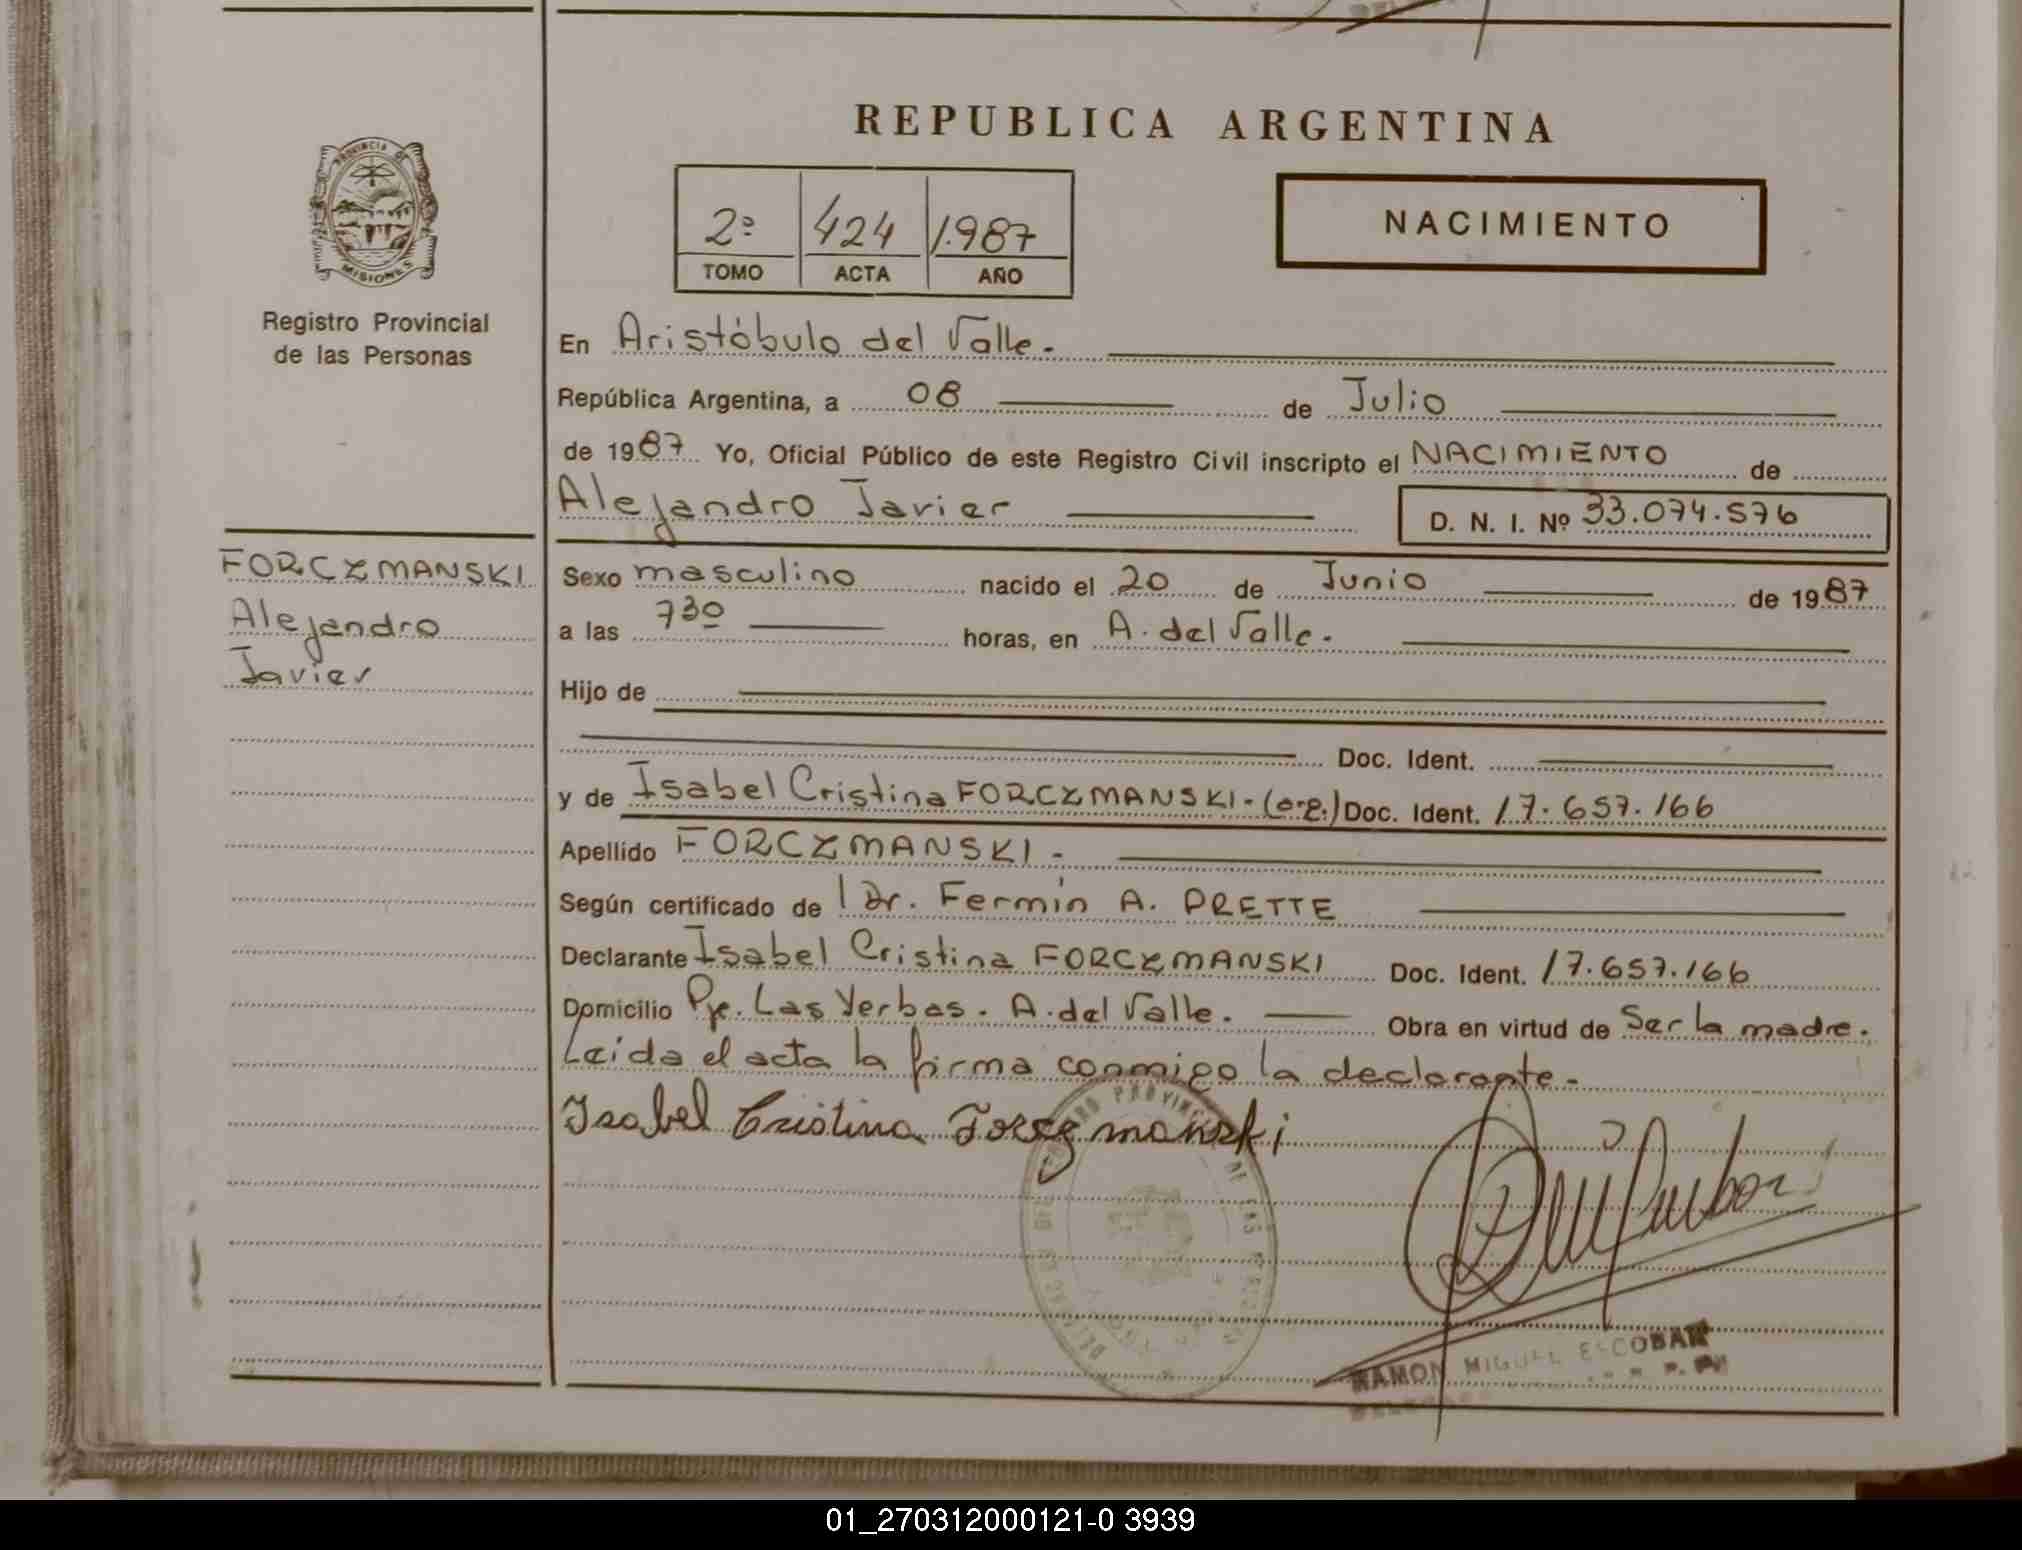 REPUBLICA ARGENTINA
PROVINCIA DE
MISIONES
Registro Provincial
de las Personas
2º 424 1.987
TOMO ACTA AÑO
NACIMIENTO
En Aristóbulo del Valle.
República Argentina, a 08 de Julio
de 1987 Yo, Oficial Público de este Registro Civil inscripto el NACIMIENTO de
Alejandro Javier D. N. I. Nº 33.074.576
FORCZMANSKI
Alejandro
Javier
Sexo masculino nacido el 20 de Junio de 1987
a las 730 horas, en A. del Valle.
Hijo de
Doc. Ident.
y de Isabel Cristina FORCZMANSKI - (arg.) Doc. Ident. 17.657.166
Apellido FORCZMANSKI -
Según certificado de l Dr. Fermín A. PRETTE
Declarante Isabel Cristina FORCZMANSKI Doc. Ident. 17.657.166
Domicilio Pje. Las Yerbas. A. del Valle. Obra en virtud de Ser la madre.
Leida el acta la firma conmigo la declarante.
Isabel Cristina Forczmanski
RAMON MIGUEL ESCOBAR
01_270312000121-0 3939